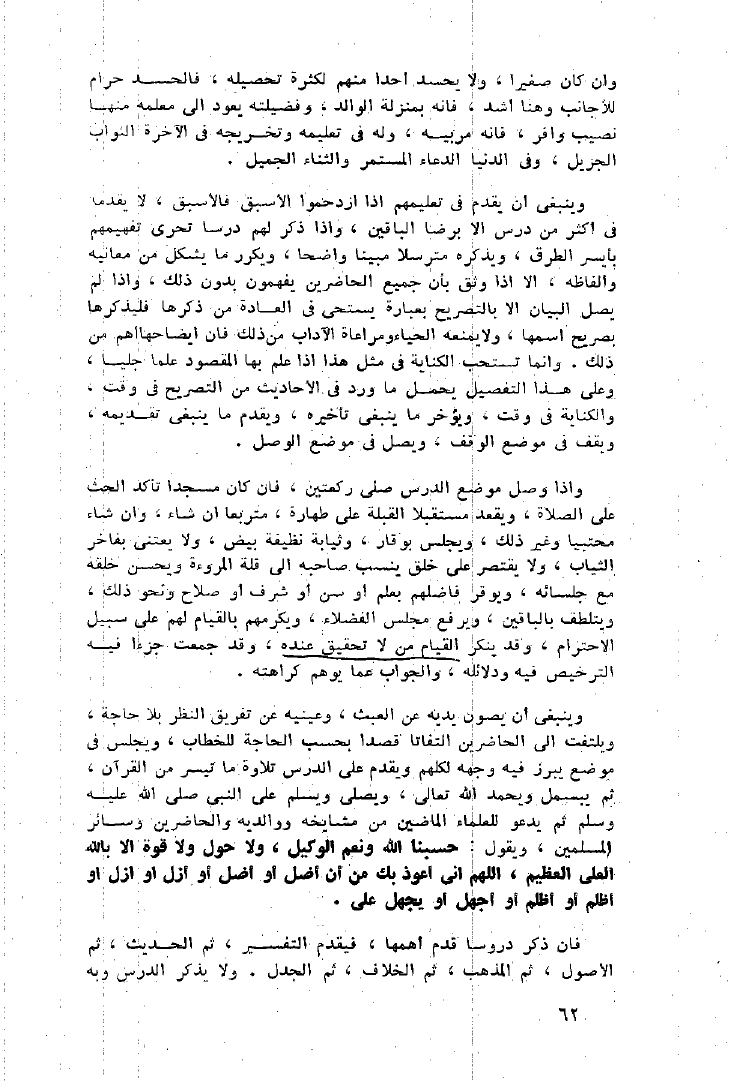 وان كان صغيرا ، ولا يحسد أحدا منهم لكثرة تحصيله ، فالحسد حرام
للأجانب وهنا أشد ، فانه بمنزلة الوالد ، وفضيلته يعود الى معلمه منها
نصيب وافر ، فانه مربيه ، وله فى تعليمه وتخريجه فى الآخرة الثواب
الجزيل ، وفى الدنيا الدعاء المستمر والثناء الجميل .
وينبغى أن يقدم فى تعليمهم اذا ازدحموا الأسبق فالأسبق ، لا يقدمها
فى أكثر من درس الا برضا الباقين ، واذا ذكر لهم درسا تحرى تفهيمهم
بأيسر الطرق ، ويذكره مترسلا مبينا واضحا ، ويكرر ما يشكل من معانيه
والفاظه ، الا اذا وثق بأن جميع الحاضرين يفهمون بدون ذلك ، واذا لم
يصل البيان الا بالتصريح بعبارة يستحى فى العادة من ذكرها فليذكرها
بصريح اسمها ، ولايمنعه الحياءومراعاة الآداب منذلك فان ايضاحهاأهم من
ذلك . وانما تستحب الكناية فى مثل هذا اذا علم بها المقصود علما جليا ،
وعلى هذا التفصيل يحمل ما ورد فى الاحاديث من التصريح فى وقت ،
والكناية فى وقت ، ويؤخر ما ينبغى تأخيره ، ويقدم ما ينبغى تقديمه ،
ويقف فى موضع الوقف ، ويصل فى موضع الوصل .
واذا وصل موضع الدرس صلى ركعتين ، فان كان مسجدا تأكد الحث
على الصلاة ، ويقعد مستقبلا القبلة على طهارة ، متربعا ان شاء ، وان شاء
محتبيا وغير ذلك ، ويجلس بوقار ، وثيابة نظيفة بيض ، ولا يعتنى بفاخر
الثياب ، ولا يقتصر على خلق ينسب صاحبه الى قلة المروءة ويحسن خلقه
مع جلسائه ، ويوقر فاضلهم بعلم أو سن أو شرف أو صلاح ونحو ذلك ،
ويتلطف بالباقين ، ويرفع مجلس الفضلاء ، ويكرمهم بالقيام لهم على سبيل
الاحترام ، وقد ينكر القيام من لا تحقيق عنده ، وقد جمعت جزءا فيه
الترخيص فيه ودلائله ، والجواب عما يوهم كراهته .
وينبغى أن يصون يديه عن العبث ، وعينيه عن تفريق النظر بلا حاجة ،
ويلتفت الى الحاضرين التفاتا قصدا بحسب الحاجة للخطاب ، ويجلس فى
موضع يبرز فيه وجهه لكلهم ويقدم على الدرس تلاوة ما تيسر من القرآن ،
ثم يبسمل ويحمد الله تعالى ، ويصلى ويسلم على النبي صلى الله عليه
وسلم ثم يدعو للعلماء الماضين من مشايخه ووالديه والحاضرين وسائر
المسلمين ، ويقول : حسبنا الله ونعم الوكيل ، ولا حول ولا قوة الا بالله
العلى العظيم ، اللهم انى أعوذ بك من أن أضل أو أضل أو أزل او ازل او
أظلم أو أظلم أو أجهل أو يجهل على .
فان ذكر دروسا قدم أهمها ، فيقدم التفسير ، ثم الحديث ، ثم
الاصول ، ثم المذهب ، ثم الخلاف ، ثم الجدل . ولا يذكر الدرس وبه
٦٢